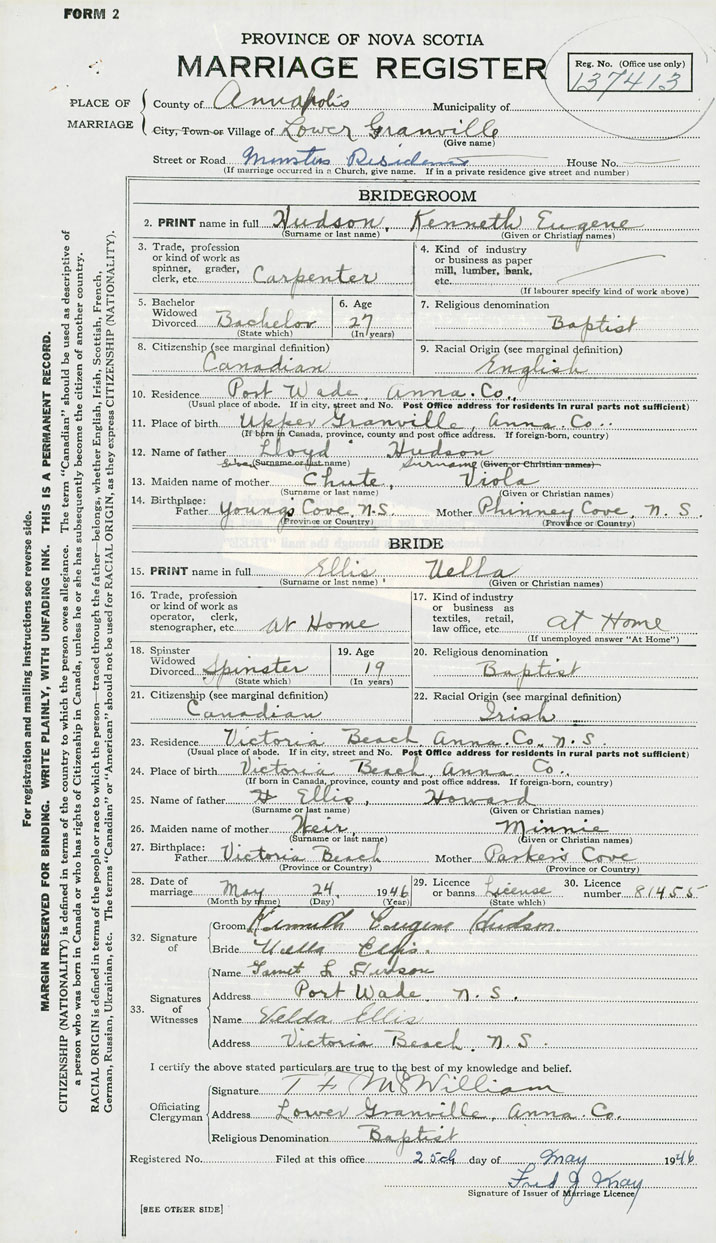 FORM 2
PROVINCE OF NOVA SCOTIA
MARRIAGE REGISTER
Reg. No. (Office use only)
137413
PLACE OF MARRIAGE
County of Annapolis Municipality of
City, Town or Village of Lower Granville
(Give name)
Street or Road Ministers Residence House No.
(If marriage occurred in a Church, give name. If in a private residence give street and number)
BRIDEGROOM
2. PRINT name in full Hudson, Kenneth Eugene
(Surname or last name) (Given or Christian names)
3. Trade, profession or kind of work as spinner, grader, clerk, etc. Carpenter
4. Kind of industry or business as paper mill, lumber, bank, etc.
(If labourer specify kind of work above)
5. Bachelor Widowed Divorced Bachelor
(State which)
6. Age 27
(In years)
7. Religious denomination
Baptist
8. Citizenship (see marginal definition)
Canadian
9. Racial Origin (see marginal definition)
English
10. Residence Port Wade, Anna. Co.,
(Usual place of abode. If in city, street and No. Post Office address for residents in rural parts not sufficient)
11. Place of birth Upper Granville, Anna. Co..
(If born in Canada, province, county and post office address. If foreign-born, country)
12. Name of father Lloyd Hudson
(Surname or last name) Surname (Given or Christian names)
13. Maiden name of mother Chute, Viola
(Surname or last name) (Given or Christian names)
14. Birthplace:
Father Youngs Cove, N.S. Mother Phinney Cove, N. S.
(Province or Country) (Province or Country)
BRIDE
15. PRINT name in full Ellis, Uella
(Surname or last name) (Given or Christian names)
16. Trade, profession or kind of work as operator, clerk, stenographer, etc. at Home
17. Kind of industry or business as textiles, retail, law office, etc. at Home
(If unemployed answer "At Home")
18. Spinster Widowed Divorced Spinster
(State which)
19. Age 19
(In years)
20. Religious denomination
Baptist
21. Citizenship (see marginal definition)
Canadian
22. Racial Origin (see marginal definition)
Irish
23. Residence Victoria Beach, Anna. Co., N. S.
(Usual place of abode. If in city, street and No. Post Office address for residents in rural parts not sufficient)
24. Place of birth Victoria Beach, Anna Co..
(If born in Canada, province, county and post office address. If foreign-born, country)
25. Name of father H Ellis, Howard
(Surname or last name) (Given or Christian names)
26. Maiden name of mother Weir, Minnie
(Surname or last name) (Given or Christian names)
27. Birthplace:
Father Victoria Beach Mother Parker's Cove
(Province or Country) (Province or Country)
28. Date of marriage May 24, 1946
(Month by name) (Day) (Year)
29. Licence or banns License
(State which)
30. Licence number 81455
32. Signature of
Groom Kenneth Eugene Hudson.
Bride Uella Ellis.
33. Signatures of Witnesses
Name L Hudson
Address Port Wade, N. S.
Name Velda Ellis
Address Victoria Beach, N. S.
I certify the above stated particulars are true to the best of my knowledge and belief.
Officiating Clergyman
Signature McWilliam
Address Lower Granville, Anna. Co.
Religious Denomination Baptist
Registered No. Filed at this office 25th day of May 1946
Fred J
Signature of Issuer of Marriage Licence
[SEE OTHER SIDE]
For registration and mailing instructions see reverse side.
MARGIN RESERVED FOR BINDING. WRITE PLAINLY, WITH UNFADING INK. THIS IS A PERMANENT RECORD.
CITIZENSHIP (NATIONALITY) is defined in terms of the country to which the person owes allegiance. The term "Canadian" should be used as descriptive of
a person who was born in Canada or who has rights of Citizenship in Canada, unless he or she has subsequently become the citizen of another country.
RACIAL ORIGIN is defined in terms of the people or race to which the person—traced through the father—belongs, whether English, Irish, Scottish, French,
German, Russian, Ukrainian, etc. The terms "Canadian" or "American" should not be used for RACIAL ORIGIN, as they express CITIZENSHIP (NATIONALITY).